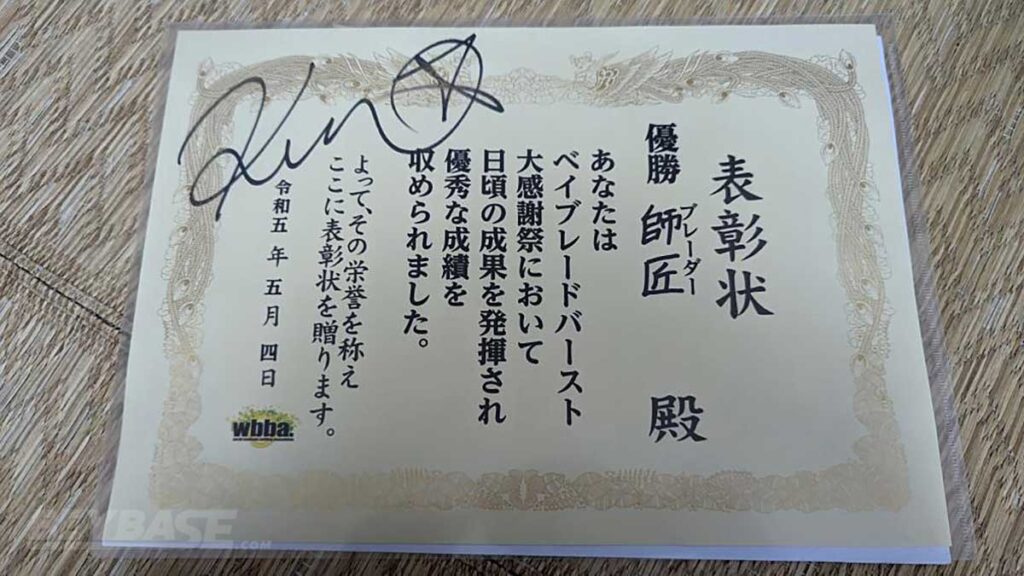 表彰状
優勝 師匠 殿
ブレーダー
あなたは
ベイブレードバースト
大感謝祭において
日頃の成果を発揮され
優秀な成績を
収められました。
よって、その栄誉を称え
ここに表彰状を贈ります。
令和五年五月四日
wbba.